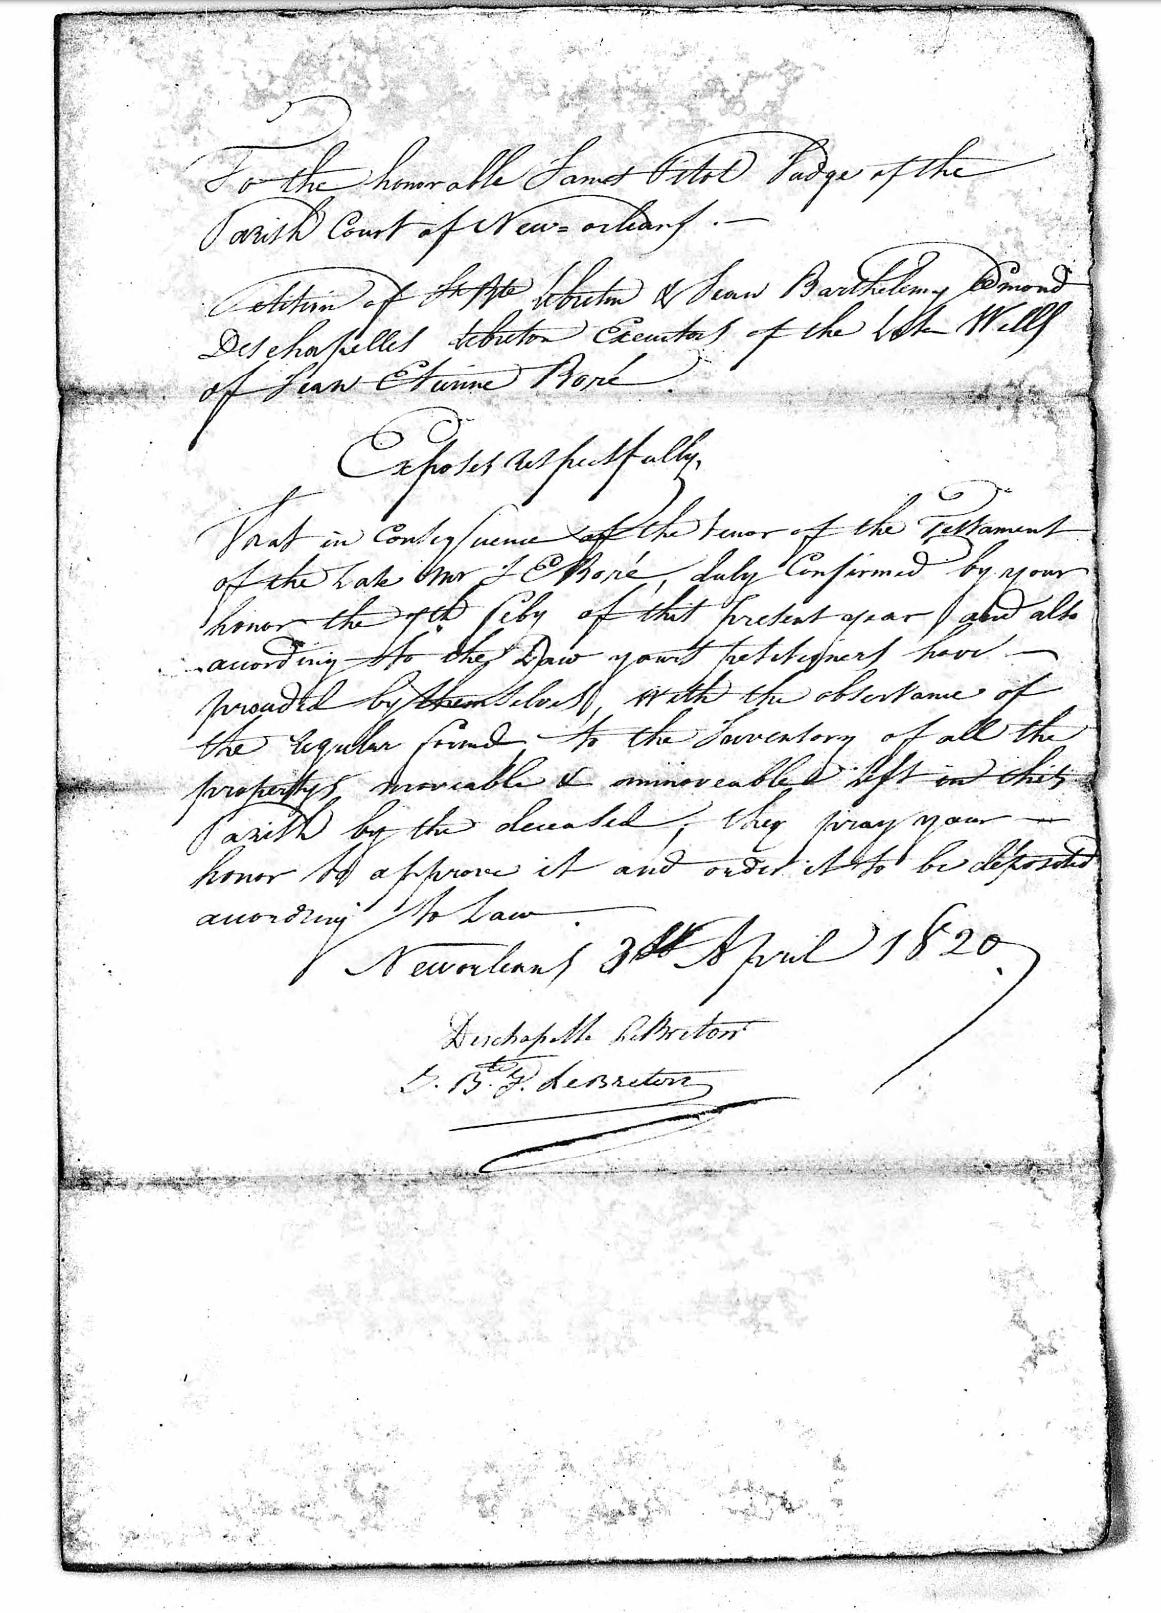 To the honorable James Pitot Judge of the
Parish Court of New=orleans .—
Petition of Jn Bte Lebreton & Jean Barthelemy Edmond
Deschapelles Lebreton Executors of the Late Wills
of Jean Etienne Boré.
Exposes respectfully,
That in Consequence of the tenor of the Testament
of the Late Mr J E Boré, duly Confirmed by your
honor the 7th feby of this present year and also
according to the Law yours petitioners have —
proceded by themselves, with the observance of
the regular formes to the Inventory of all the
propertys moveable & immoveable left in this
Parish by the deceased, they pray your —
honor to approve it and order it to be deposited
according to Law .
Neworleans 3d April 1820.
Deschapelle LeBreton
J. Bte. F. LeBreton